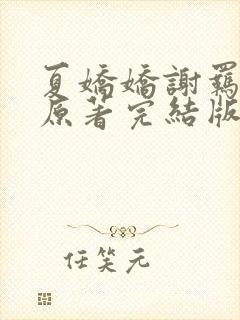 夏嬌嬌謝羈
原著完結版
任笑元